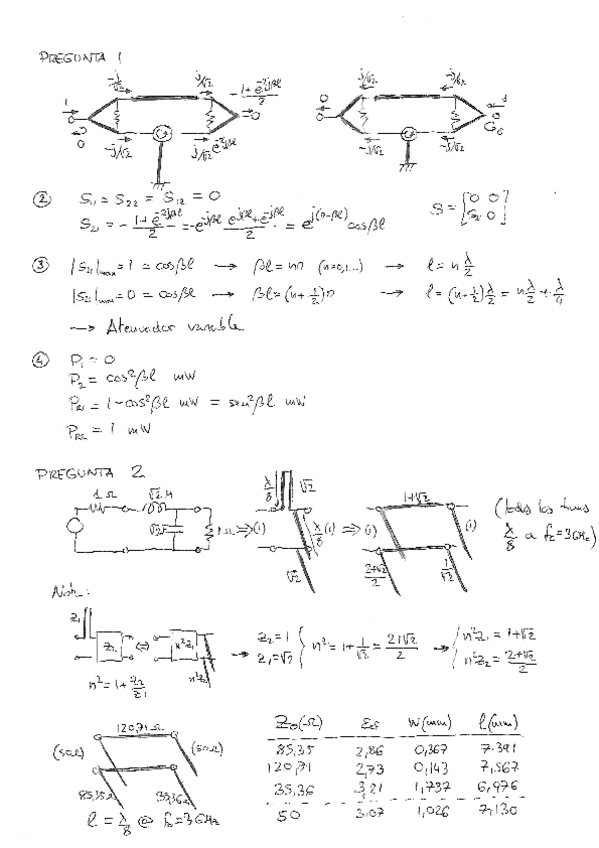 PREGUNTA 1
-j/√2 j/√2 -(1+e^-2jβl)/2
1 0
0
-j/√2 j/√2 e^-2jβl
j/√2 -j/√2
0 1
0 0
-j/√2 -j/√2
② S11 = S22 = S12 = 0
S21 = -(1+e^-2jβl)/2 = -e^-jβl (e^jβl+e^-jβl)/2 = e^j(π-βl) cosβl S=[0 0; S21 0]
③ |S21|max = 1 = cosβl → βl = nπ (n=0,1...) → l = n λ/2
|S21|min = 0 = cosβl → βl = (n+1/2)π → l = (n+1/2) λ/2 = n λ/2 + λ/4
→ Atenuador variable
④ P1 = 0
P2 = cos²βl mW
PR1 = 1-cos²βl mW = sen²βl mW
PR2 = 1 mW
PREGUNTA 2
1Ω √2 H √2 F 1Ω ⇒ (1) λ/8 √2 λ/8 (1) √2 ⇒ (1) 1+√2 (1) (2+√2)/2 1/√2
λ/8 a fc=3GHz)
Z1 Z2 ⇔ n²Z1 n²Z2 → Z2=1 Z1=√2 { n² = 1+1/√2 = (2+√2)/2 → { n²Z1 = 1+√2
n²Z2 = (2+√2)/2
n² = 1+Z2/Z1
120,71Ω
(50Ω) (50Ω)
85,35Ω 35,36Ω
l = λ/8 @ fc=3GHz
Z0(Ω) εef W(mm) l(mm)
85,35 2,86 0,367 7.391
120,71 2,73 0,143 7,567
35,36 3,21 1,737 6,976
50 3.07 1,026 7,130